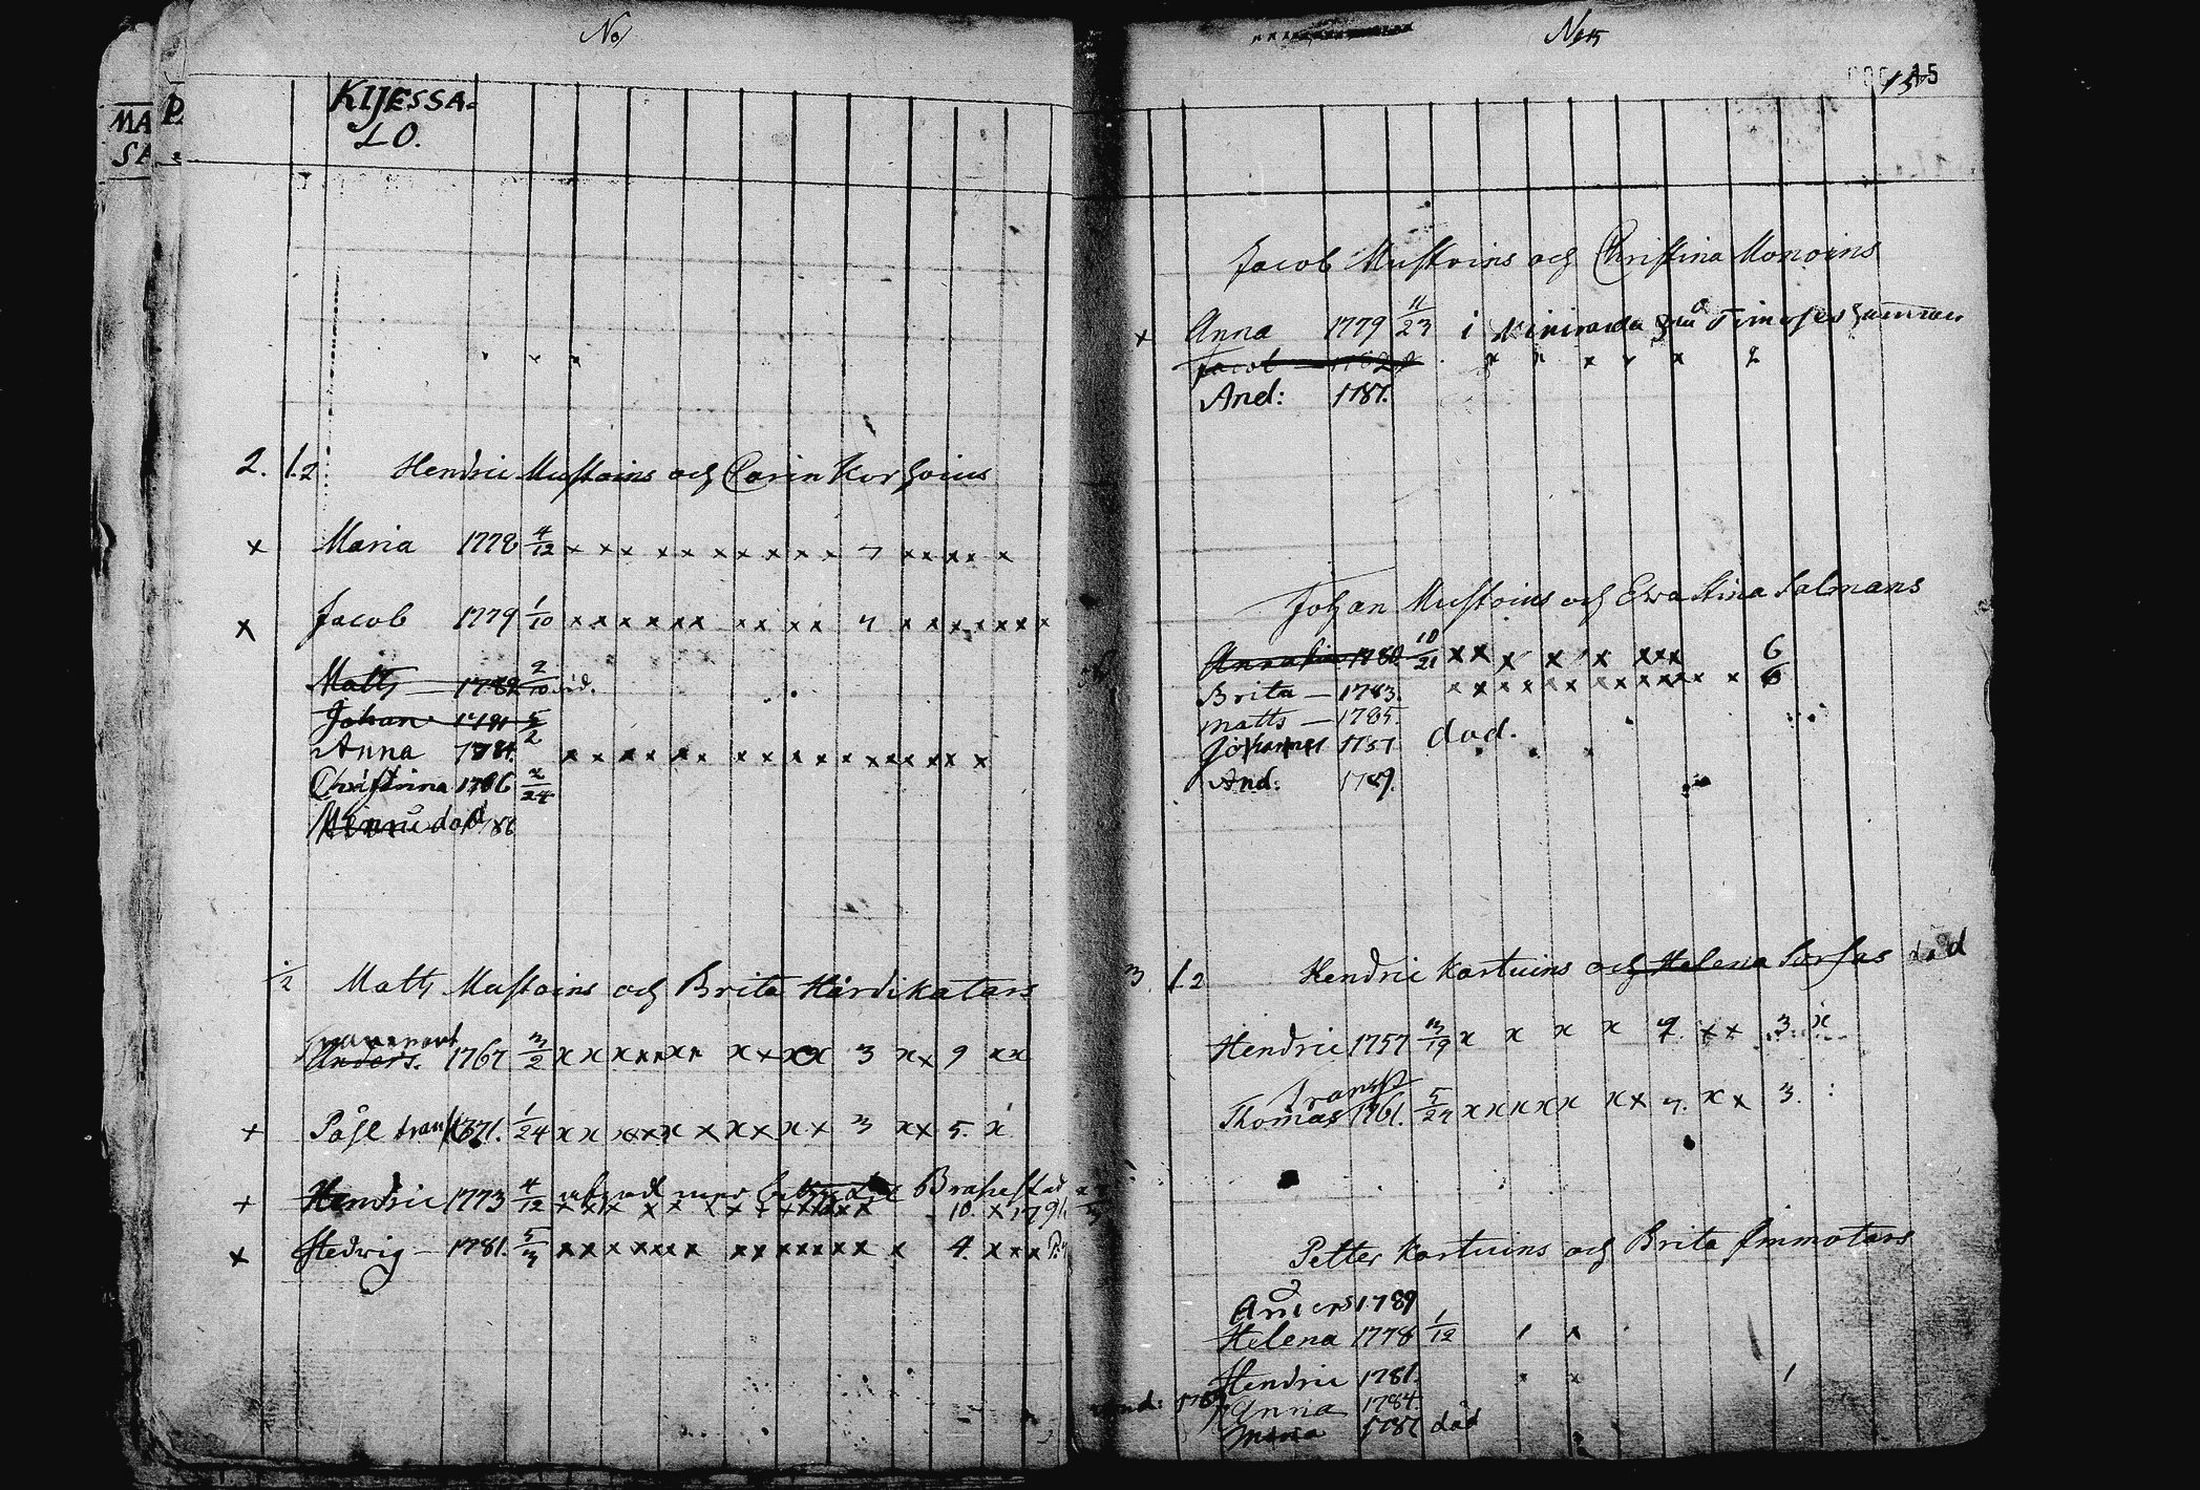 No
KIJESSA=
LO.
MA
SA
P
2. 1.2 Hendric Mustoins och Carin Korhoins
x Maria 1778 4/12 x x x x x x x x x x x 7 x x x x x
x Jacob 1779 1/10 x x x x x x x x x x 7 x x x x x x x
Matts 1782 2/10 död.
Johan 1781 5/2
Anna 1784. x x x x x x x x x x x x x x x x x
Christina 1786 2/24
död 1786
1/2 Matts Mustoins och Brita Härdikatars
Anders. 1767 3/2 x x x x x x x x x x x 3 x x 9 x x
+ Påhl 1771. 1/24 x x x x x x x x x x 3 x x 5. x
+ Hendric 1773 4/12 Brahestad
x x x x x x x x x x x x 10. x 1791
x Hedvig 1781. 5/3 x x x x x x x x x x x x x x 4. x x x
No 15
15
Jacob Mustoins och Christina Monoins
x Anna 1779 11/23 i
Jacob 1782 x x x x x 2
And: 1787.
Johan Mustoins och Ewa Stina Salmans
1780 10/21 x x x x x x x x 6
Brita — 1783. x x x x x x x x x x x x 6
Matts — 1785.
Johannes 1787 död.
And: 1789.
3. 1.2 Hendric Kortuins och Helena Sorsas död
Hendric 1757 13/19 x x x x 9. x x 3. x
Transp
Thomas 1761. 5/24 x x x x x x x 7. x x 3. :
Petter Kortuins och Brita Immotars
Anders 1789
Helena 1778 1/12
Hendric 1781.
Anna 1784.
Maria 1787 död